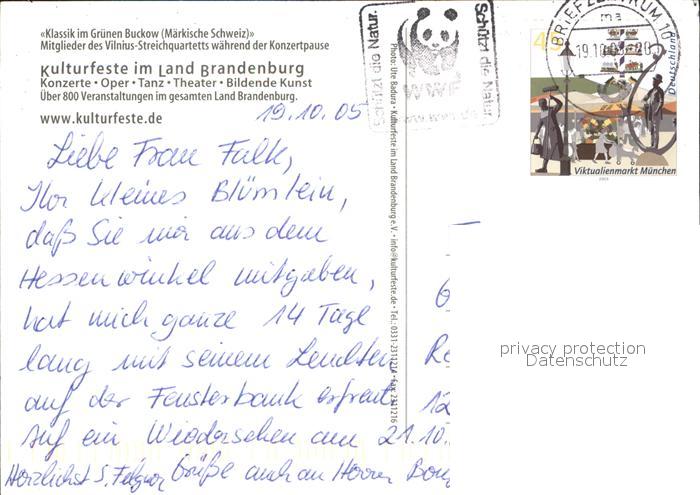 «Klassik im Grünen Buckow (Märkische Schweiz)»
Mitglieder des Vilnius-Streichquartetts während der Konzertpause
Kulturfeste im Land Brandenburg
Konzerte • Oper • Tanz • Theater • Bildende Kunst
Über 800 Veranstaltungen im gesamten Land Brandenburg.
www.kulturfeste.de
19.10.05
Liebe Frau Falk,
Ihr kleines Blümlein,
daß Sie mir aus dem
Hessenwinkel mitgaben,
hat mich ganze 14 Tage
lang mit seinem Leuchten
auf der Fensterbank erfreut.
Auf ein Wiedersehen am 21.10.
Herzlichst
Grüße auch an Herrn
Photo: Ute Badura • Kulturfeste im Land Brandenburg e.V. • info@kulturfeste.de • Tel.: 0331-2311214 • Fax: 2311216
Schützt die Natur.
Schützt die Natur.
WWF
BRIEFZENTRUM 10
ma
19.10.05-20
Deutschland
Viktualienmarkt München
2003
Re
12
privacy protection
Datenschutz